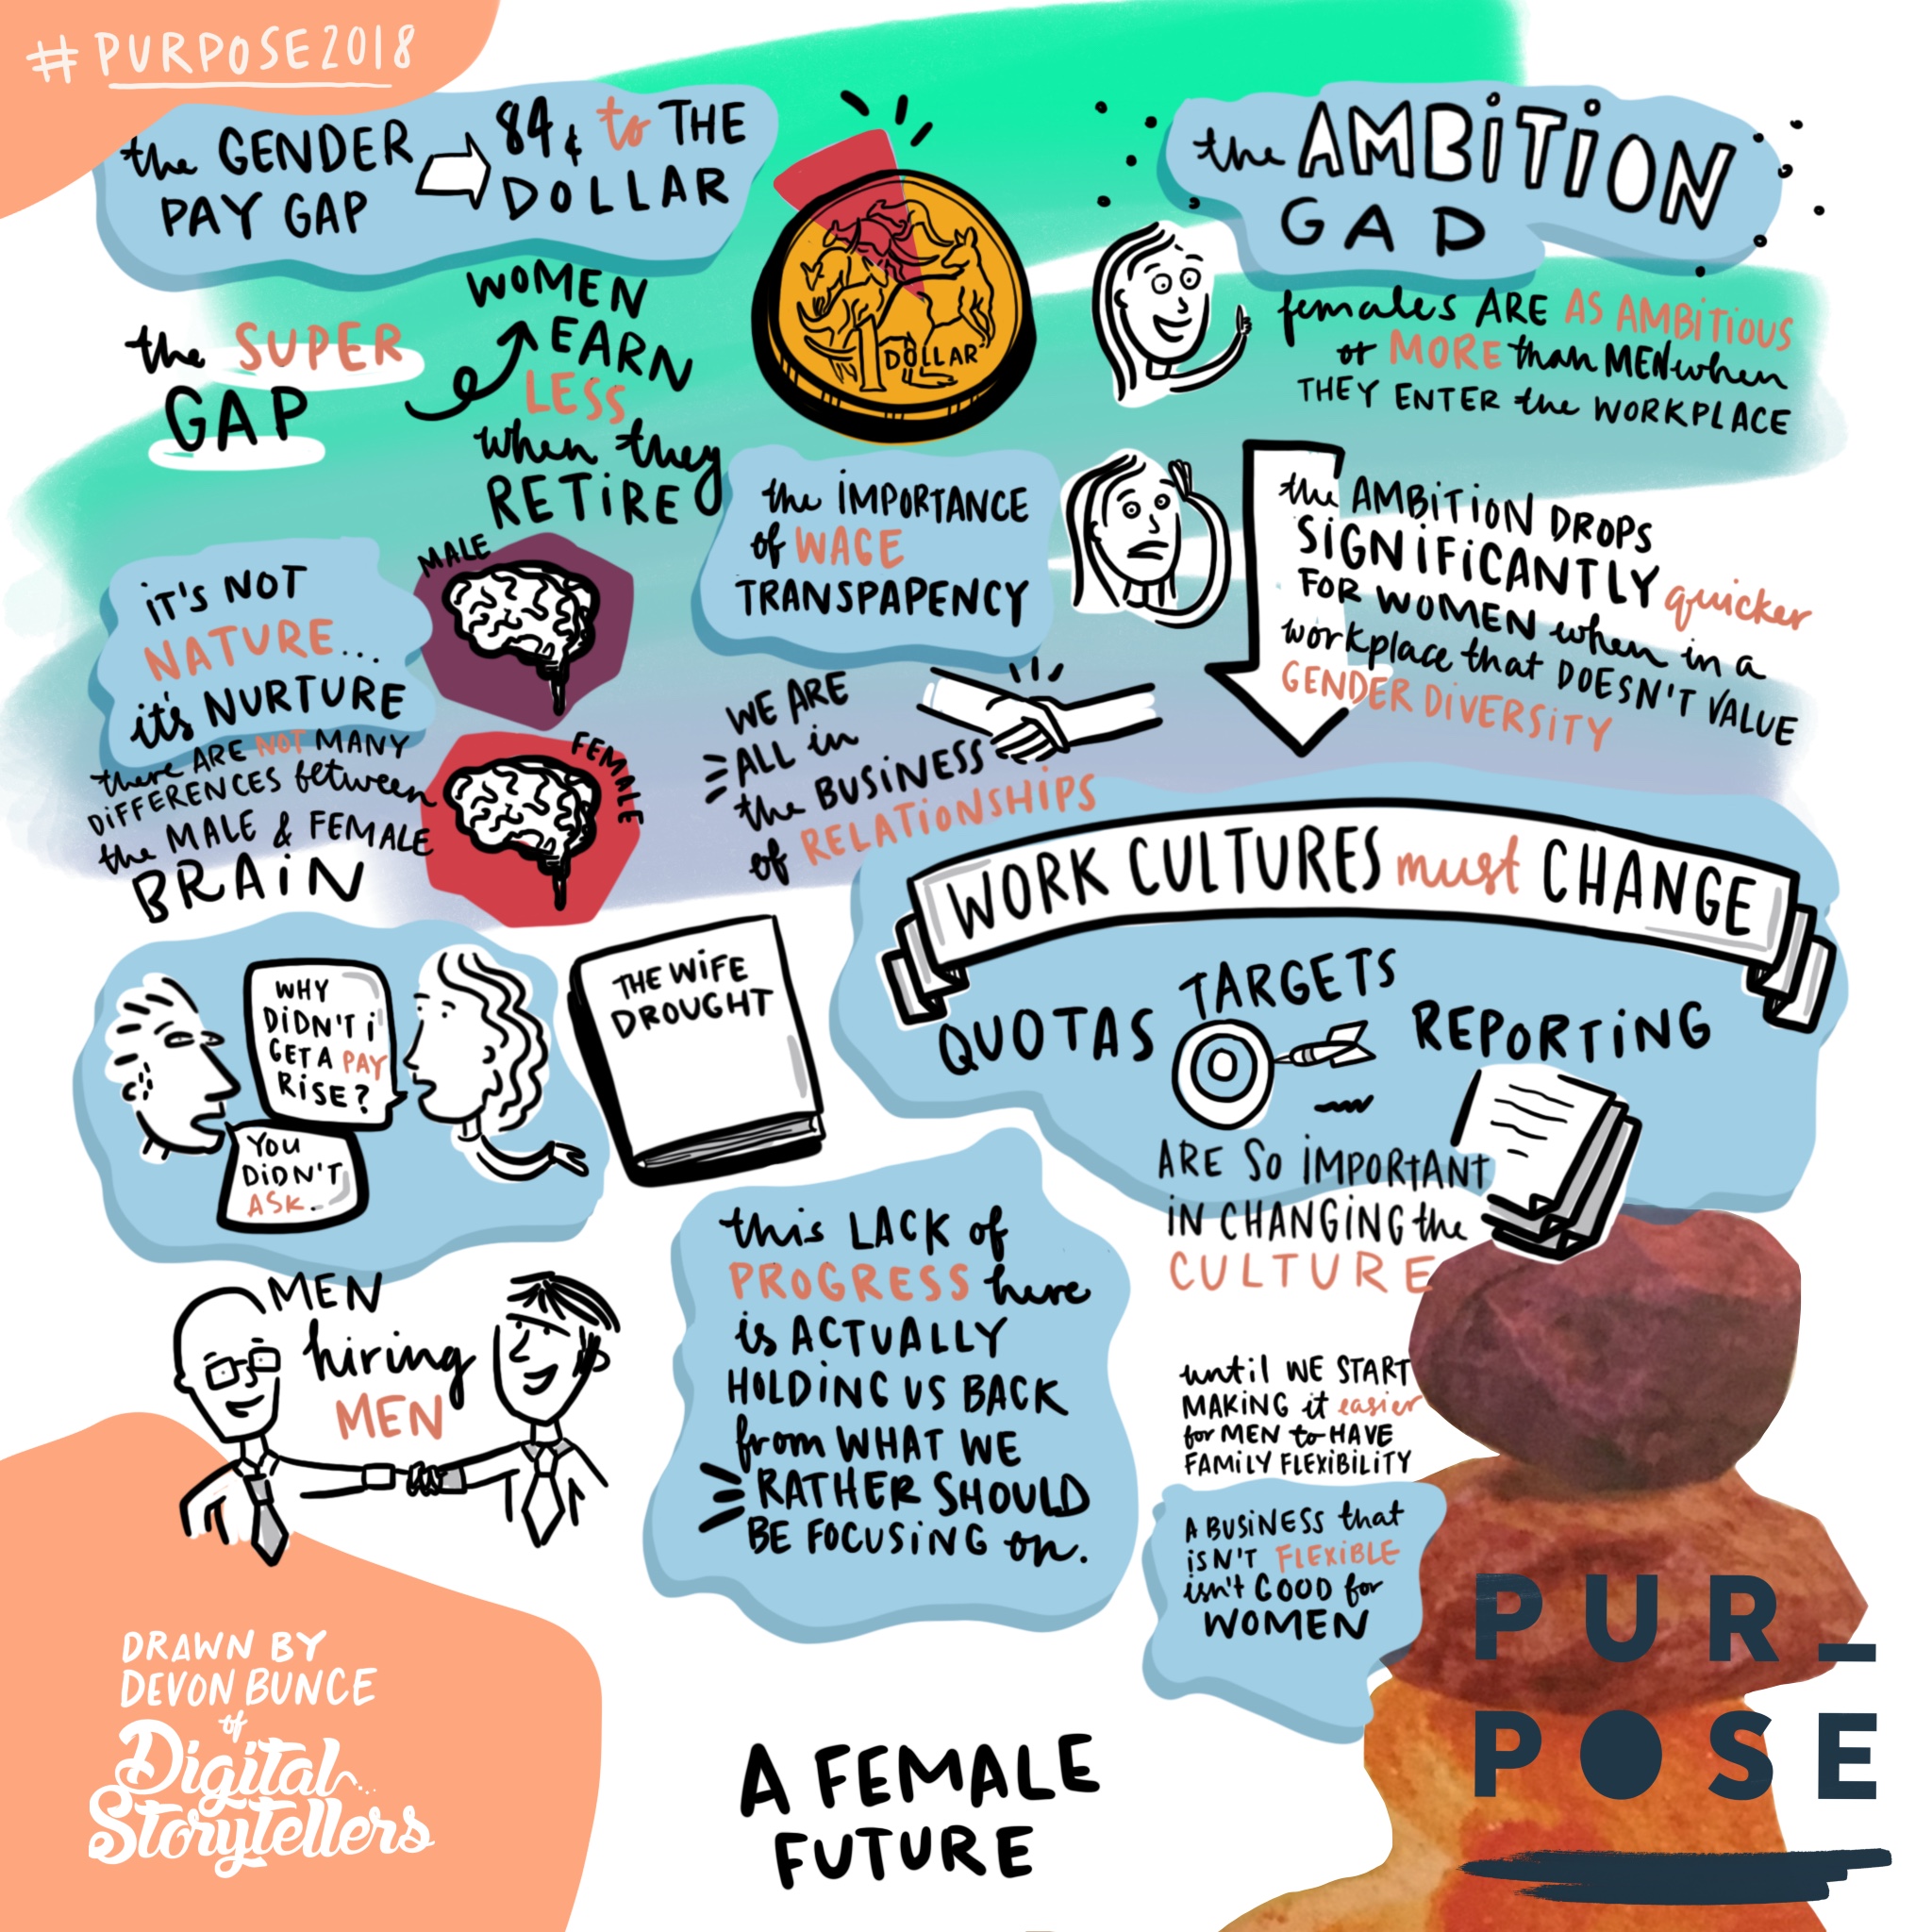 #PURPOSE2018
the GENDER
PAY GAP
84¢ to THE
DOLLAR
the SUPER
GAP
WOMEN
EARN
LESS
when they
RETIRE
1 DOLLAR
the AMBITION
GAP
females ARE AS AMBITIOUS
or MORE than MEN when
THEY ENTER the WORKPLACE
the AMBITION DROPS
SIGNIFICANTLY quicker
FOR WOMEN when in a
workplace that DOESN'T VALUE
GENDER DIVERSITY
the IMPORTANCE
of WAGE
TRANSPAPENCY
IT'S NOT
NATURE...
it's NURTURE
there ARE NOT MANY
DIFFERENCES between
the MALE & FEMALE
BRAIN
MALE
FEMALE
WE ARE
ALL in
the BUSINESS
of RELATIONSHIPS
WORK CULTURES must CHANGE
QUOTAS
TARGETS
REPORTING
ARE SO IMPORTANT
IN CHANGING the
CULTURE
WHY
DIDN'T I
GET A PAY
RISE?
YOU
DIDN'T
ASK..
THE WIFE
DROUGHT
MEN
hiring
MEN
this LACK of
PROGRESS here
is ACTUALLY
HOLDING US BACK
from WHAT WE
RATHER SHOULD
BE FOCUSING on.
until WE START
MAKING it easier
for MEN to HAVE
FAMILY FLEXIBILITY
A BUSINESS that
ISN'T FLEXIBLE
isn't GOOD for
WOMEN
DRAWN BY
DEVON BUNCE
of
Digital...
Storytellers
A FEMALE
FUTURE
PUR_
POSE